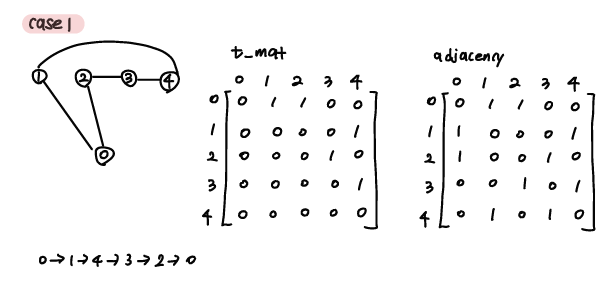 case 1
1 2 3 4
0
t_mat
0 1 2 3 4
0 0 1 1 0 0
1 0 0 0 0 1
2 0 0 0 1 0
3 0 0 0 0 1
4 0 0 0 0 0
adjacency
0 1 2 3 4
0 0 1 1 0 0
1 1 0 0 0 1
2 1 0 0 1 0
3 0 0 1 0 1
4 0 1 0 1 0
0→1→4→3→2→0